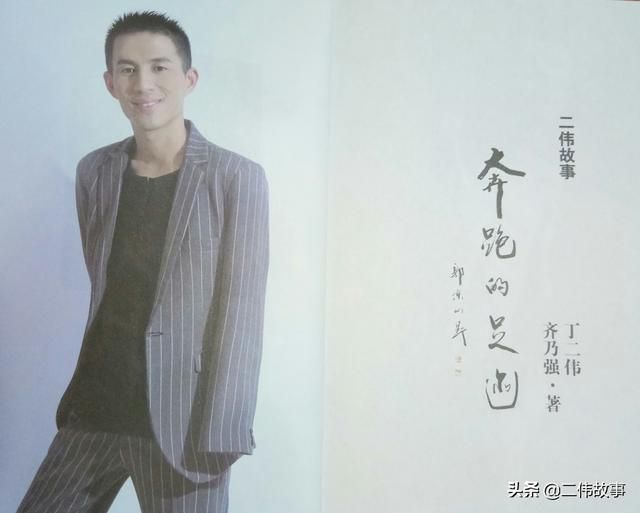 二伟故事
奔跑的足迹
丁二伟
齐乃强·著
头条 @二伟故事